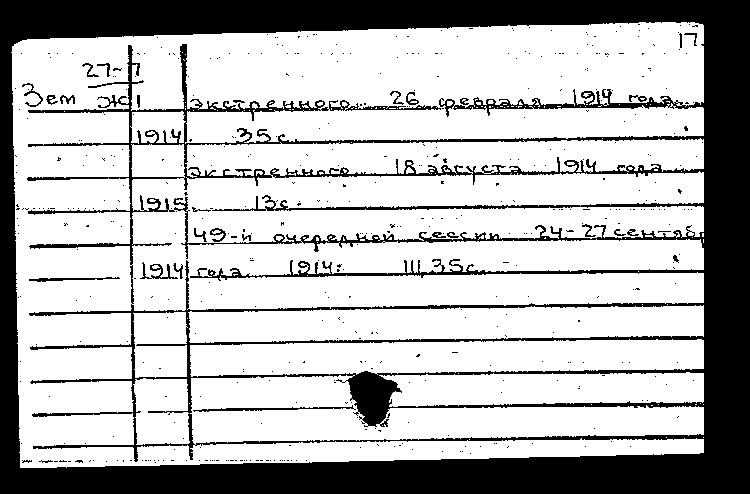 17.
27-7
Зем ЖI экстренного 26 февраля 1914 года
1914. 35 с.
экстренного 18 августа 1914 года
1915. 13 с.
49-й очередной сессии 24-27 сентябр
1914 года 1914: III, 35 с.